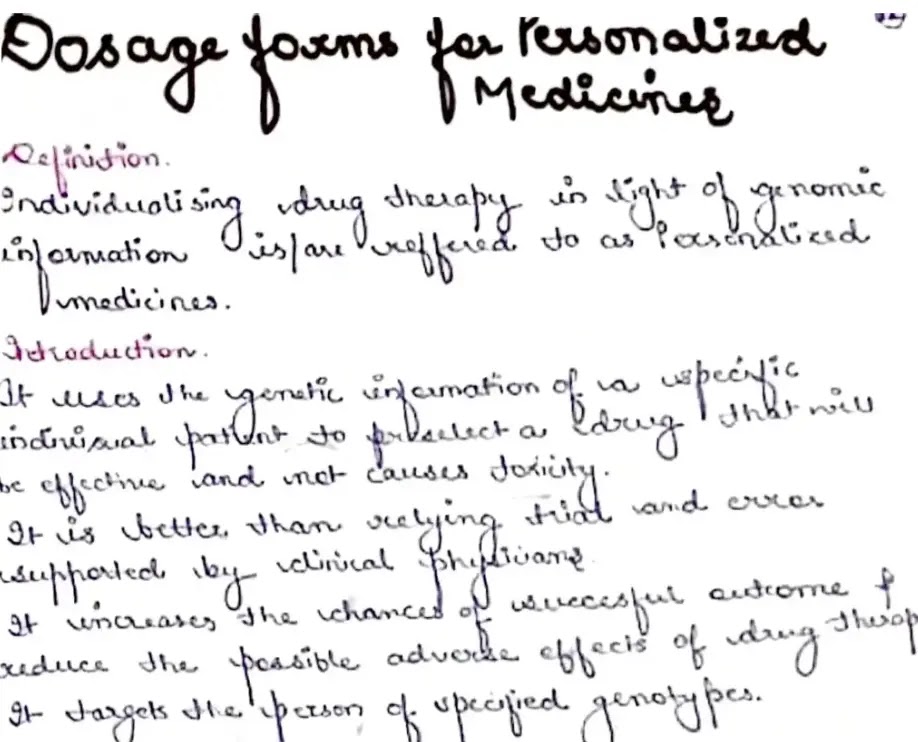 Dosage forms for Personalized
Medicines
Definition.
Individualising drug therapy in light of genomic
information is/are reffered to as Personalized
medicines.
Introduction.
It uses the genetic information of a specific
individual patient to preselect a drug that will
be effective and not causes toxicity.
It is better than relying trial and error
supported by clinical physicians.
It increases the chances of successful outcome &
reduce the possible adverse effects of drug therap
It targets the person of specified genotypes.